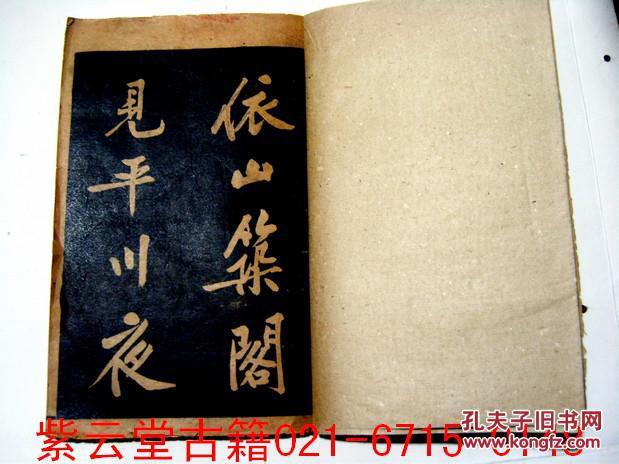 依山築閣
見平川夜
紫云堂古籍021-6715
孔夫子旧书网
www.kongfz.com